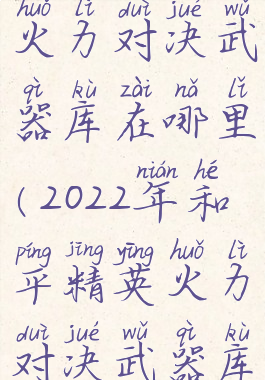 huǒ lì duì jué wǔ
火力对决武
qì kù zài nǎ lǐ
器库在哪里
nián hé
(2022年和
píng jīng yīng huǒ lì
平精英火力
duì jué wǔ qì kù
对决武器库